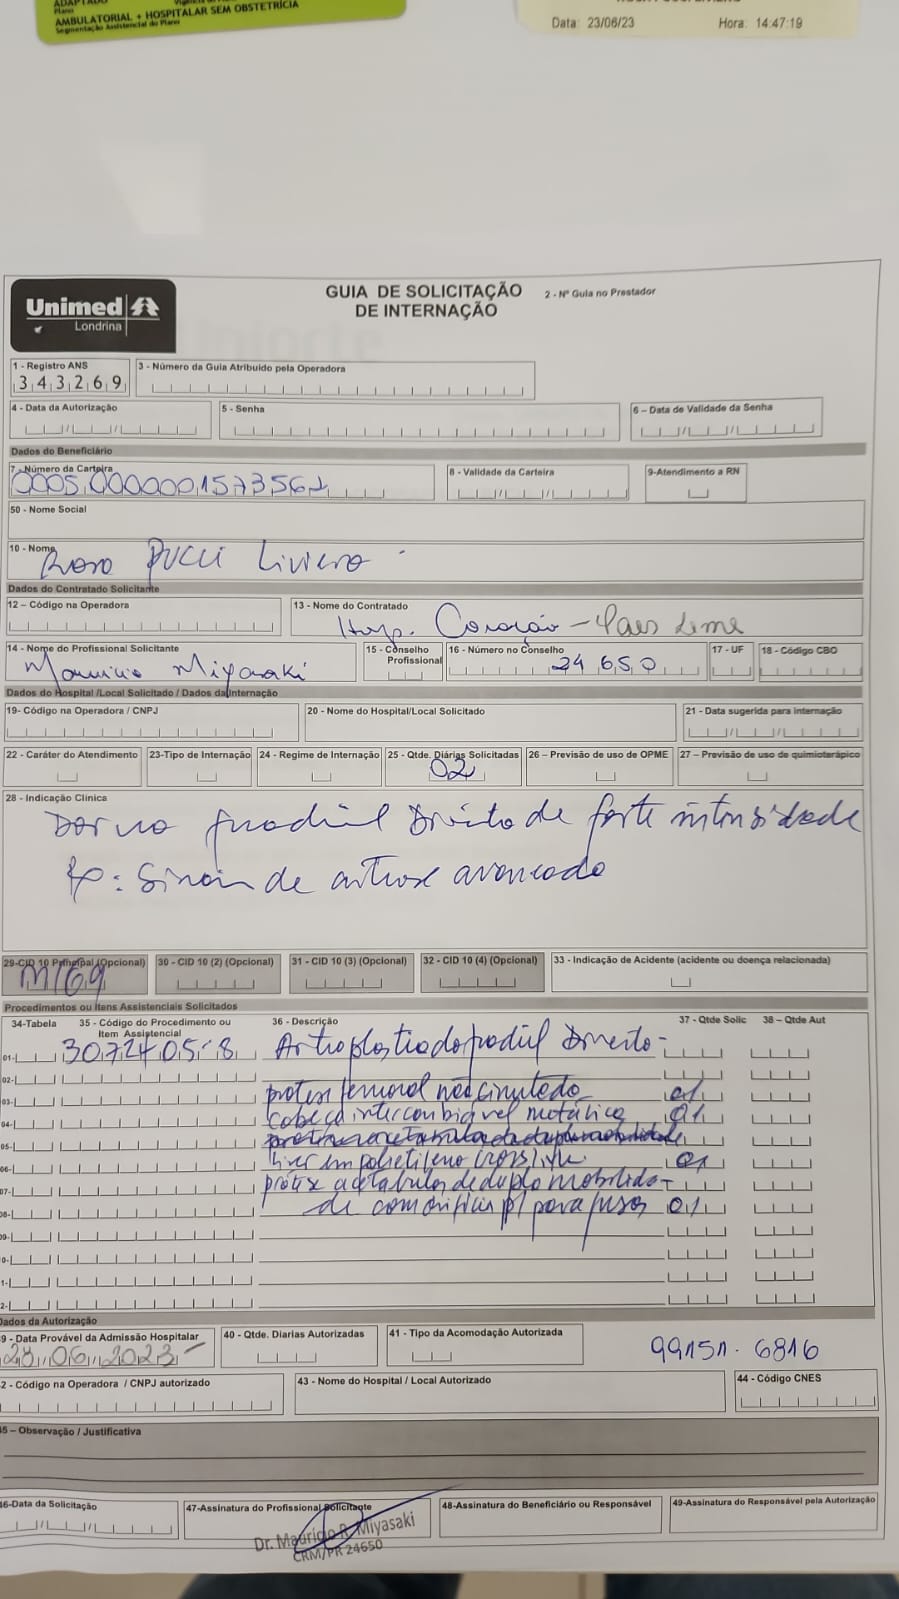 ADAPTADO
Plano
AMBULATORIAL + HOSPITALAR SEM OBSTETRÍCIA
Segmentação Assistencial do Plano
Data: 23/06/23 Hora: 14:47:19
Unimed
Londrina
GUIA DE SOLICITAÇÃO
DE INTERNAÇÃO
2 - Nº Guia no Prestador
1 - Registro ANS
343269
3 - Número da Guia Atribuído pela Operadora
4 - Data da Autorização
5 - Senha
6 – Data de Validade da Senha
Dados do Beneficiário
7 - Número da Carteira
8 - Validade da Carteira
9-Atendimento a RN
0005.0000001573561
50 - Nome Social
10 - Nome
Pucci Liviero
Dados do Contratado Solicitante
12 – Código na Operadora
13 - Nome do Contratado
Hosp. Coração - Paes Leme
14 - Nome do Profissional Solicitante
Mauricio Miyasaki
15 - Conselho Profissional
16 - Número no Conselho
24650
17 - UF
18 - Código CBO
Dados do Hospital /Local Solicitado / Dados da Internação
19- Código na Operadora / CNPJ
20 - Nome do Hospital/Local Solicitado
21 - Data sugerida para internação
22 - Caráter do Atendimento
23-Tipo de Internação
24 - Regime de Internação
25 - Qtde. Diárias Solicitadas
02
26 – Previsão de uso de OPME
27 – Previsão de uso de quimioterápico
28 - Indicação Clínica
Dor no quadril Direito de forte intensidade
Rx: Sinais de artrose avançada
29-CID 10 Principal (Opcional)
M169
30 - CID 10 (2) (Opcional)
31 - CID 10 (3) (Opcional)
32 - CID 10 (4) (Opcional)
33 - Indicação de Acidente (acidente ou doença relacionada)
Procedimentos ou Itens Assistenciais Solicitados
34-Tabela
35 - Código do Procedimento ou
Item Assistencial
36 - Descrição
37 - Qtde Solic
38 – Qtde Aut
01- 30724058 Artroplastia do quadril Direito -
02-
03- protese femoral não cimentada 01
04- cabeça intercambiável metálica 01
05-
06- liner em polietileno crosslink 01
07- prótese acetabular de dupla mobilidade
08- de com orifícios p/ parafusos 01
09-
0-
1-
2-
Dados da Autorização
9 - Data Provável da Admissão Hospitalar
28 06 2023
40 - Qtde. Diarias Autorizadas
41 - Tipo da Acomodação Autorizada
99151-6816
2 - Código na Operadora / CNPJ autorizado
43 - Nome do Hospital / Local Autorizado
44 - Código CNES
45 – Observação / Justificativa
46-Data da Solicitação
47-Assinatura do Profissional Solicitante
48-Assinatura do Beneficiário ou Responsável
49-Assinatura do Responsável pela Autorização
Dr. Maurício R. Miyasaki
CRM/PR 24650